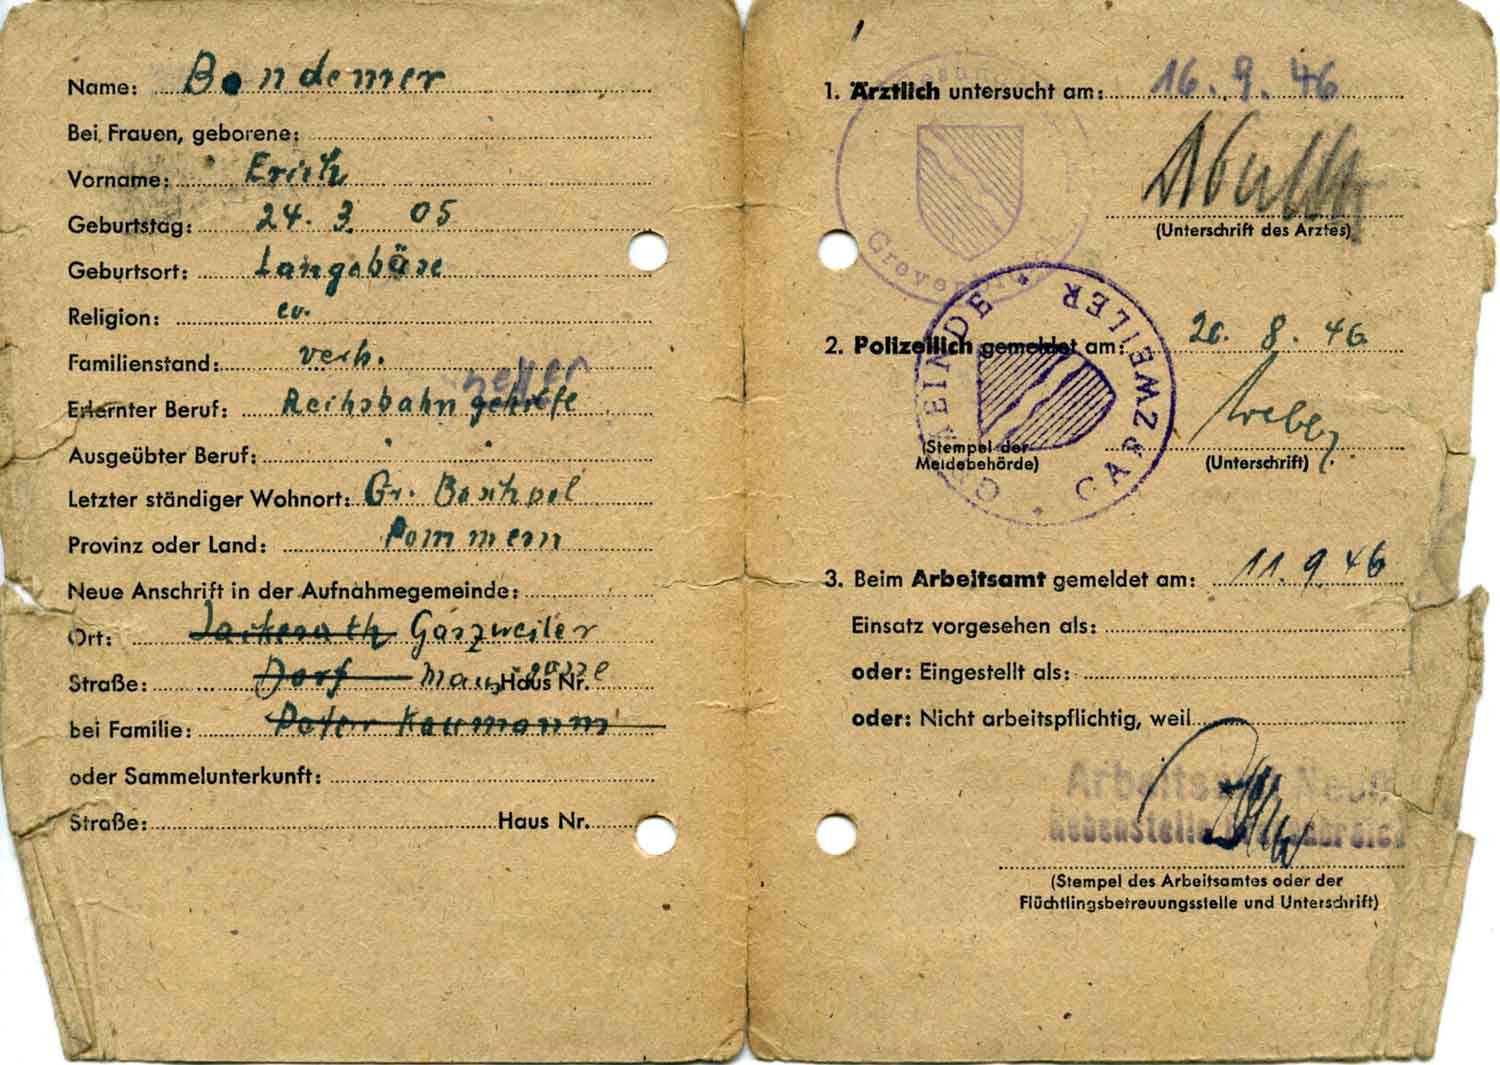 Name: Bondemer
Bei Frauen, geborene:
Vorname: Erich
Geburtstag: 24. 3. 05
Geburtsort: Langeböse
Religion: ev.
Familienstand: verh.
Erlernter Beruf: Reichsbahngehilfe
Ausgeübter Beruf:
Letzter ständiger Wohnort: Gr. Boschpol
Provinz oder Land: Pommern
Neue Anschrift in der Aufnahmegemeinde:
Ort: Jackerath Garzweiler
Straße: Dorf Haus Nr.
bei Familie: Peter
oder Sammelunterkunft:
Straße: Haus Nr.
1. Ärztlich untersucht am: 16. 9. 46
Greven
(Unterschrift des Arztes)
2. Polizeilich gemeldet am: 26. 8. 46
GEMEINDE * GARZWEILER *
(Stempel der
Meldebehörde)
(Unterschrift)
3. Beim Arbeitsamt gemeldet am: 11. 9. 46
Einsatz vorgesehen als:
oder: Eingestellt als:
oder: Nicht arbeitspflichtig, weil
Arbeitsamt
Nebenstelle
(Stempel des Arbeitsamtes oder der
Flüchtlingsbetreuungsstelle und Unterschrift)